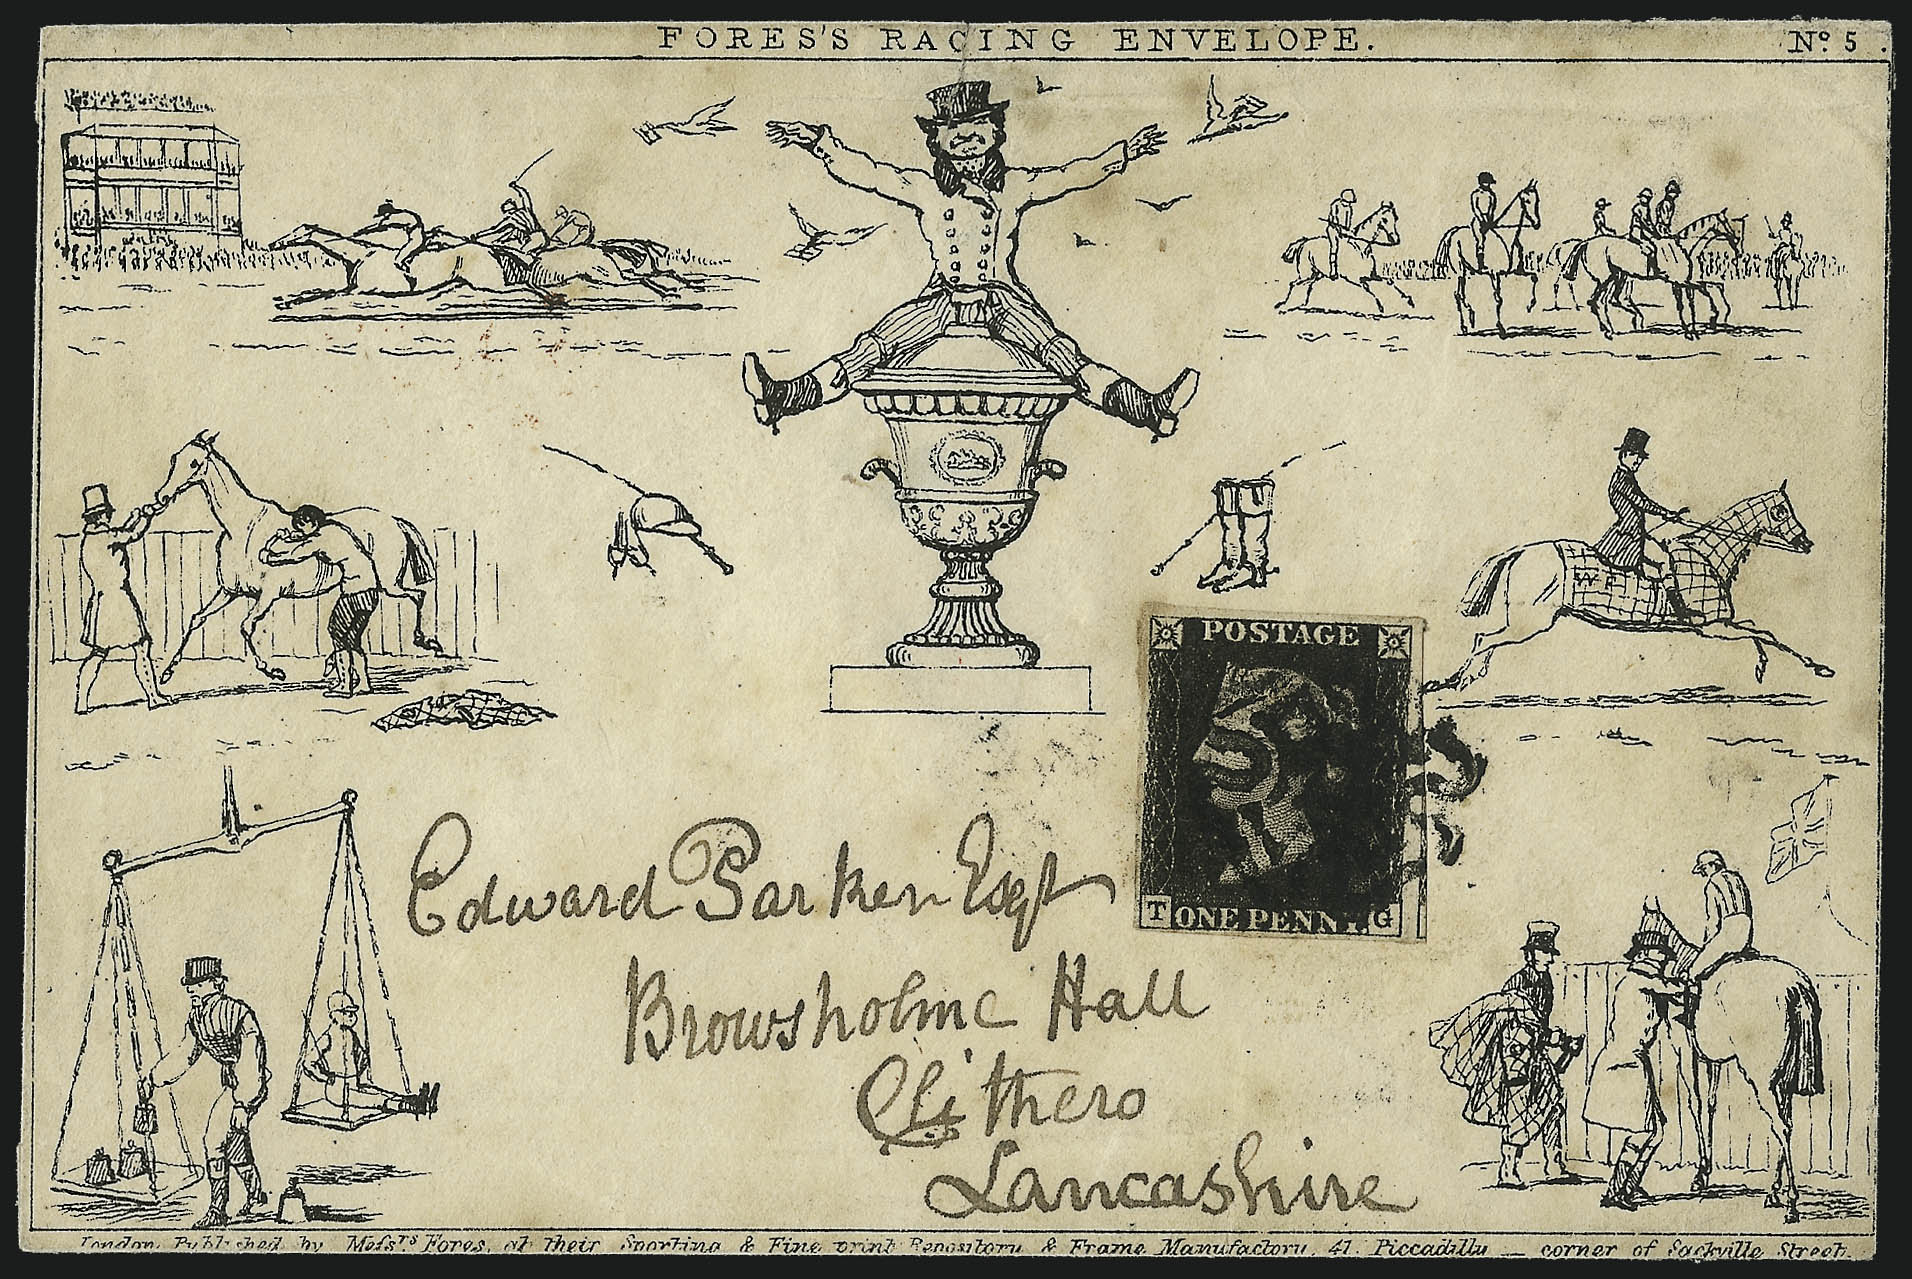 FORES'S RACING ENVELOPE.
Nº 5.
POSTAGE
T ONE PENNY. G
W F
Edward Parker Esqr
Browsholme Hall
Clithero
Lancashire
London, Published by Messrs Fores, at their Sporting & Fine print Repository & Frame Manufactory, 41 Piccadilly — corner of Sackville Street.